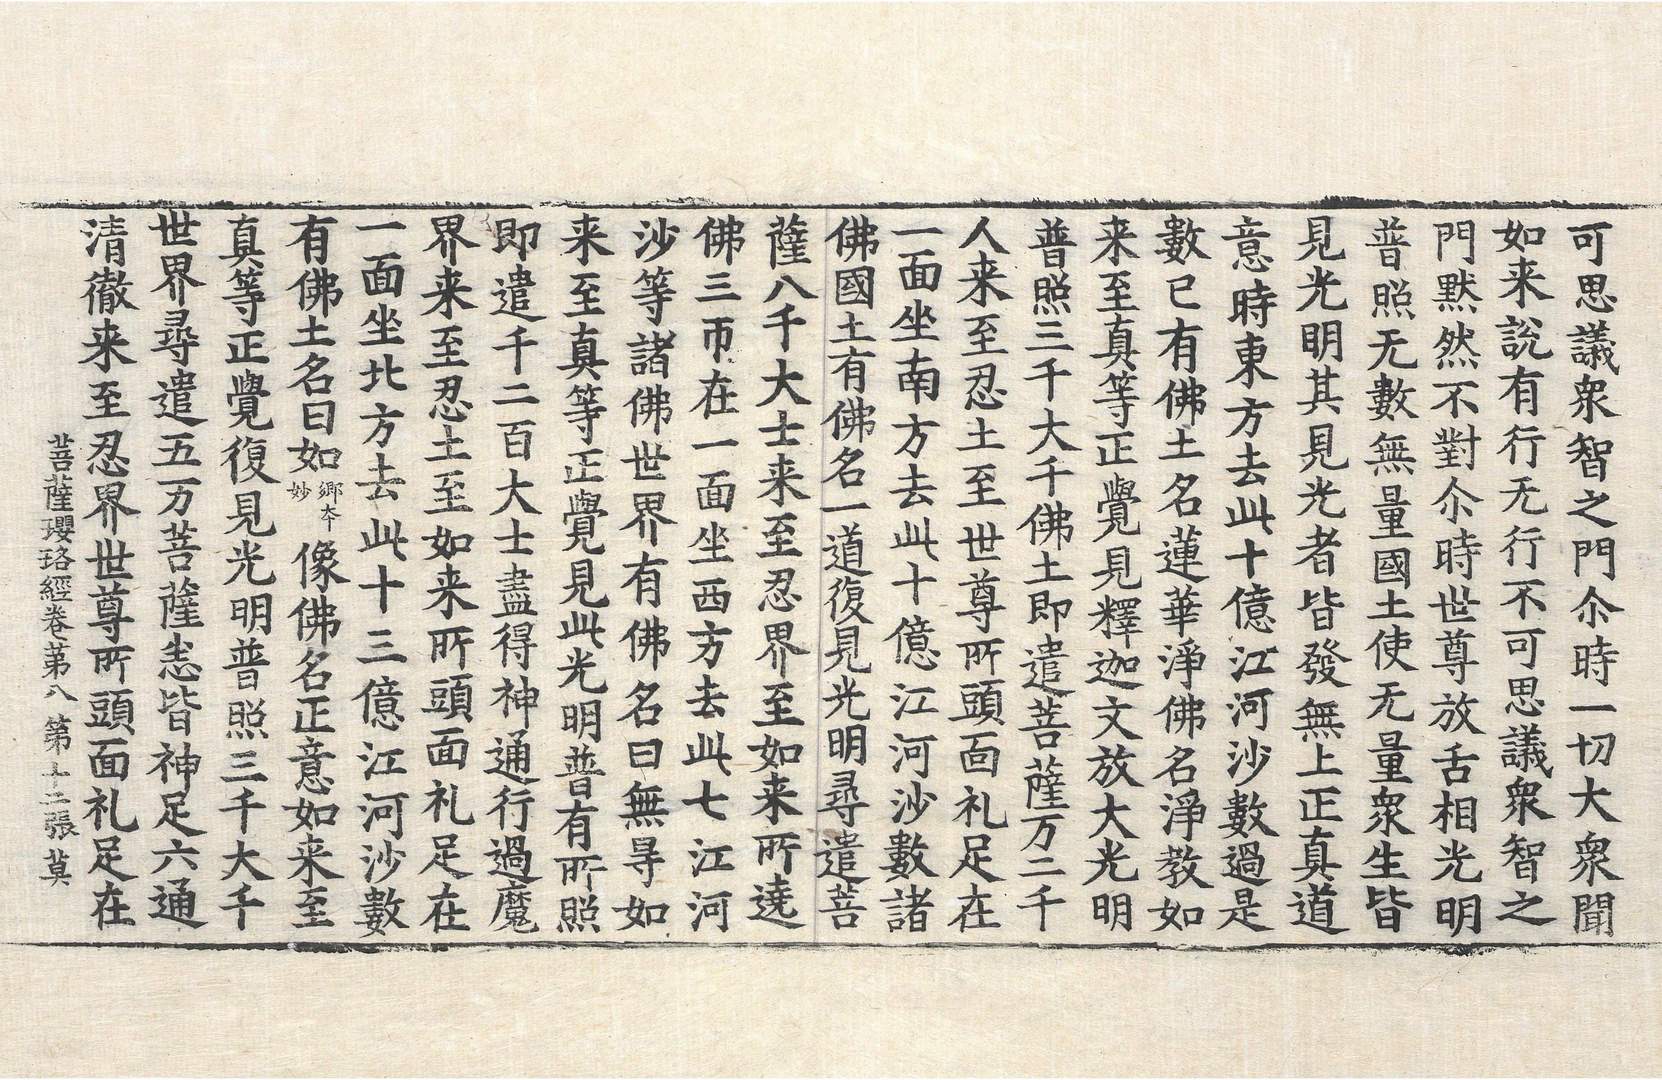 可思議衆智之門尒時一切大衆聞
如来說有行无行不可思議衆智之
門默然不對尒時世尊放舌相光明
普照无數無量國土使无量衆生皆
見光明其見光者皆發無上正真道
意時東方去此十億江河沙數過是
數已有佛土名蓮華淨佛名淨教如
来至真等正覺見釋迦文放大光明
普照三千大千佛土即遣菩薩万二千
人来至忍土至世尊所頭面礼足在
一面坐南方去此十億江河沙數諸
佛國土有佛名一道復見光明尋遣菩
薩八千大士来至忍界至如来所遶
佛三帀在一面坐西方去此七江河
沙等諸佛世界有佛名曰無㝵如
来至真等正覺見此光明普有所照
即遣千二百大士盡得神通行過魔
界来至忍土至如来所頭面礼足在
一面坐北方去此十三億江河沙數
有佛土名曰如鄉本妙像佛名正意如来至
真等正覺復見光明普照三千大千
世界尋遣五万菩薩悉皆神足六通
清徹来至忍界世尊所頭面礼足在
菩薩瓔珞經卷苐八 第十二張 莫